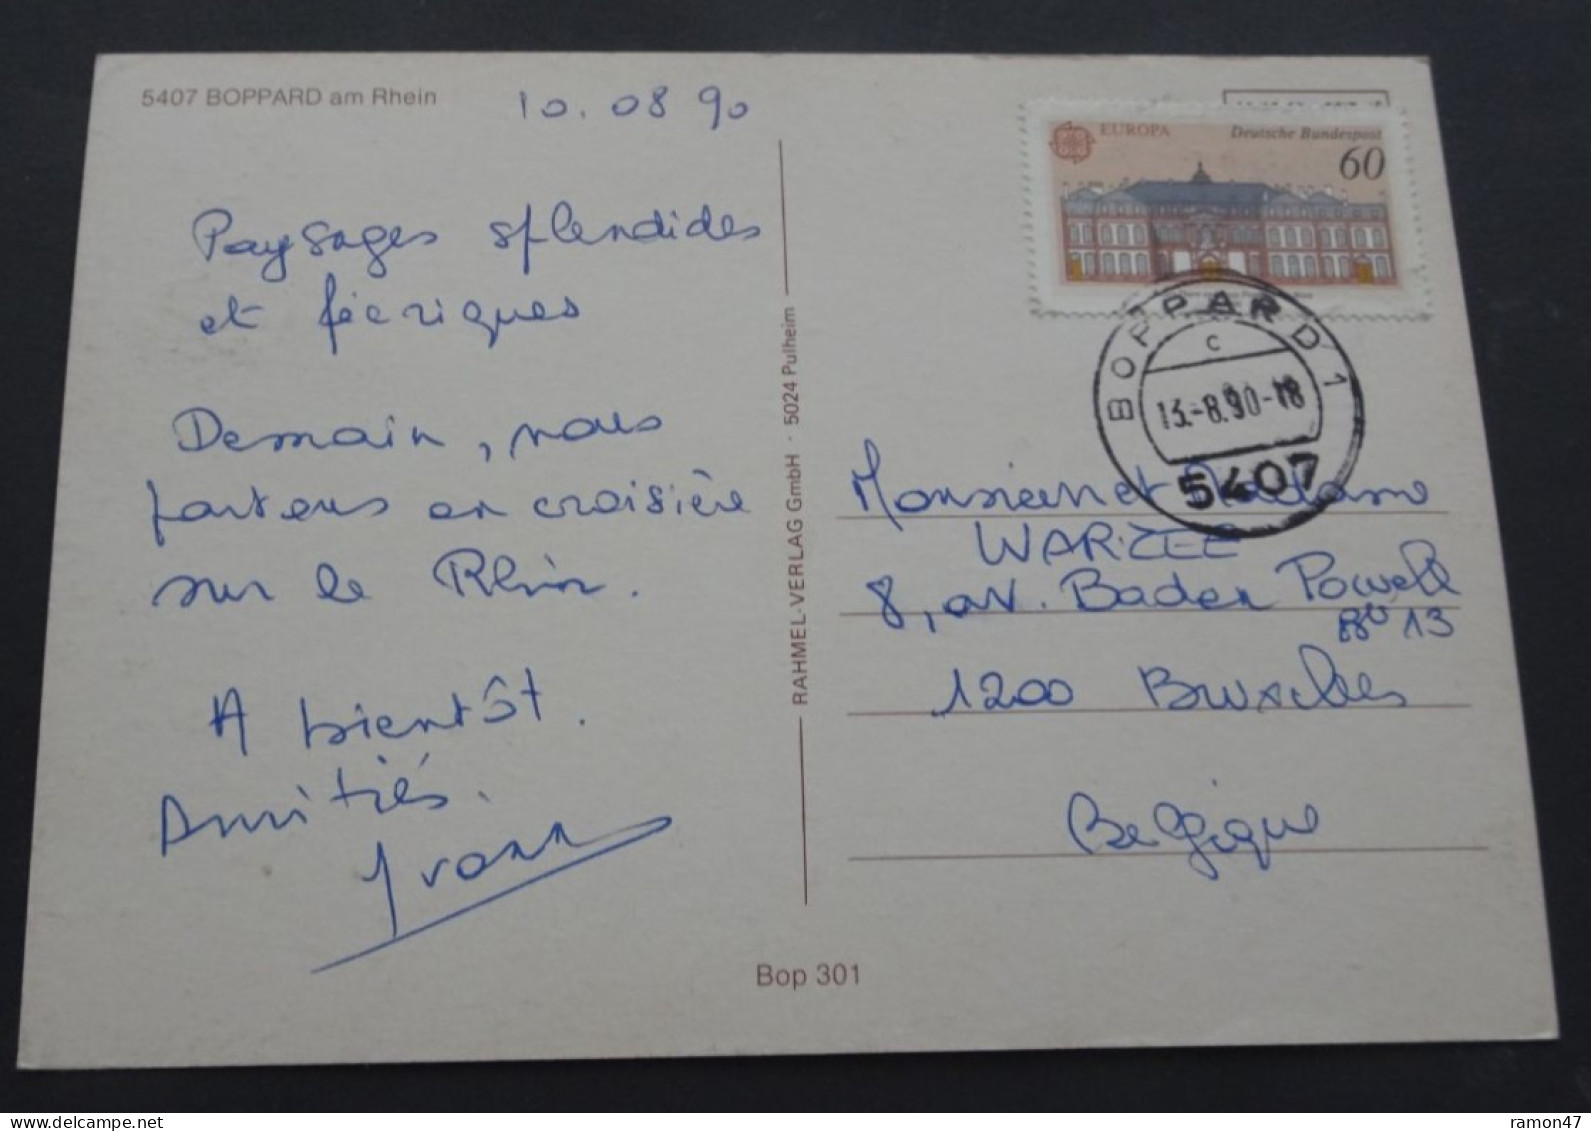 5407 BOPPARD am Rhein
10.08 90
Paysages splendides
et féeriques
Demain, nous
partons en croisière
sur le Rhin.
A bientôt.
Amitiés.
Yvonn
RAHMEL-VERLAG GmbH · 5024 Pulheim
Bop 301
EUROPA
Deutsche Bundespost
60
BOPPARD 1
c
13.-8.90-18
5407
Monsieur et Madame
WARZEE
8, av. Baden Powell
Bte 13
1200 Bruxelles
Belgique
ramon47